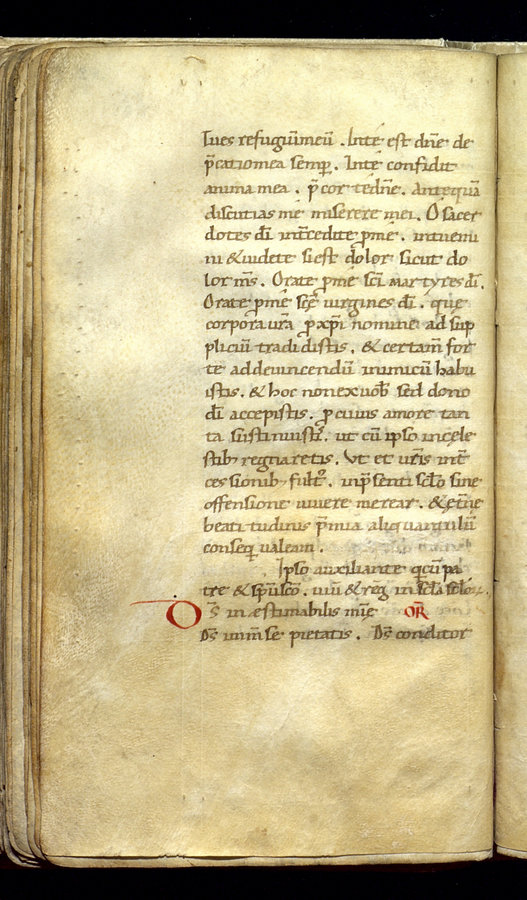 lues refugiũ meũ . Inte est dñe de
p̃catio mea semp . Inte confidit
anima mea . p̃cor te dñe . Antequã
discutias me miserere mei . O sacer
dotes dĩ int̃cedite p me . intuemi
ni & uidete si est dolor sicut do
lor m̃s . Orate p me sc̃i martyres dĩ .
Orate p me sc̃e uirgines dĩ . que
corpora ur̃a p xp̃i nomine ad sup
pliciũ tradidistis . & certam̃ for
te ad deuincendũ inimicũ habu
istis . & hoc non ex uob̃ sed dono
dĩ accepistis . p cuius amore tan
ta sustinuistis . ut cũ ipso in cele
stib; regnaretis . Ut et ur̃is int̃
cessionib; fult᷒ . in p̃senti sc̃lo sine
offensione uiuere merear . & et̃ne
beatitudinis p̃mia aliquantulũ
conseq ualeam .
Ipso auxiliante q cũ pa
tre & sp̃u sc̃o . uiu & reg̃ in sc̃la sc̃lo
Ds̃ inæstimabilis mĩe OR̃
Ds̃ inm̃se pietatis . Ds̃ conditor